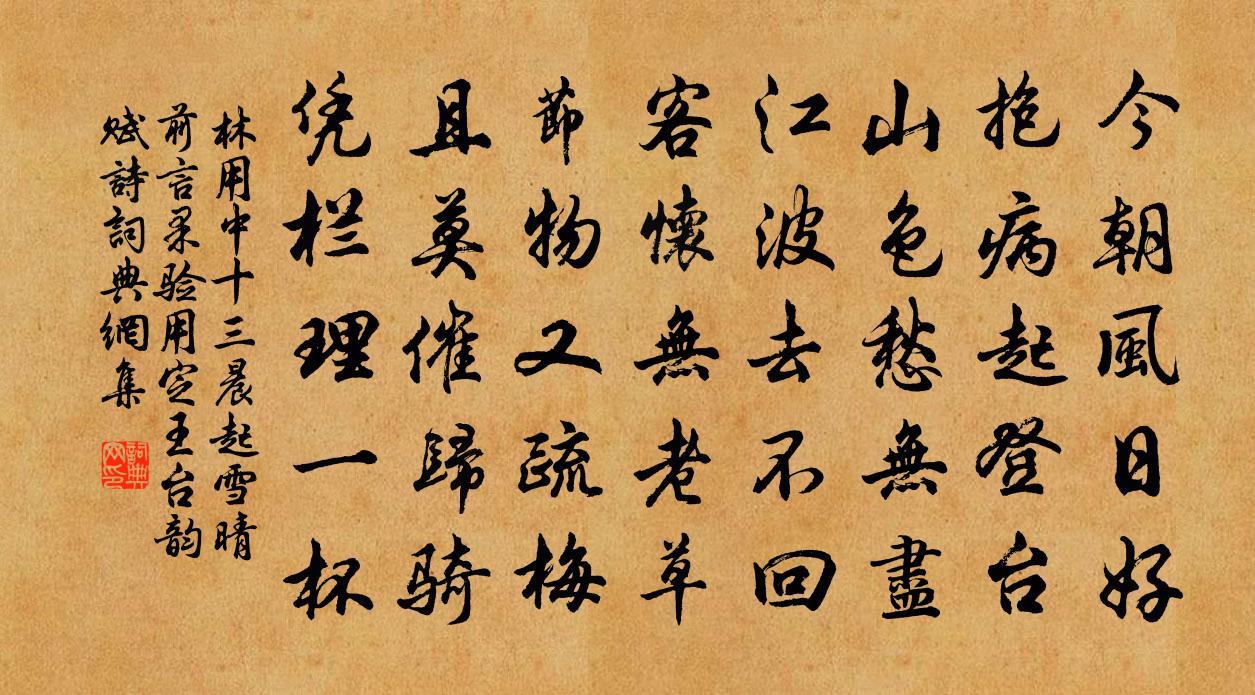 今朝風日好
抱病起登台
山色愁無盡
江波去不回
客懷無老草
節物又疏梅
且莫催歸骑
凭栏理一杯
林用中十三晨起雪晴
前言果验用定王台韵
赋詩詞典網集
詞典網印